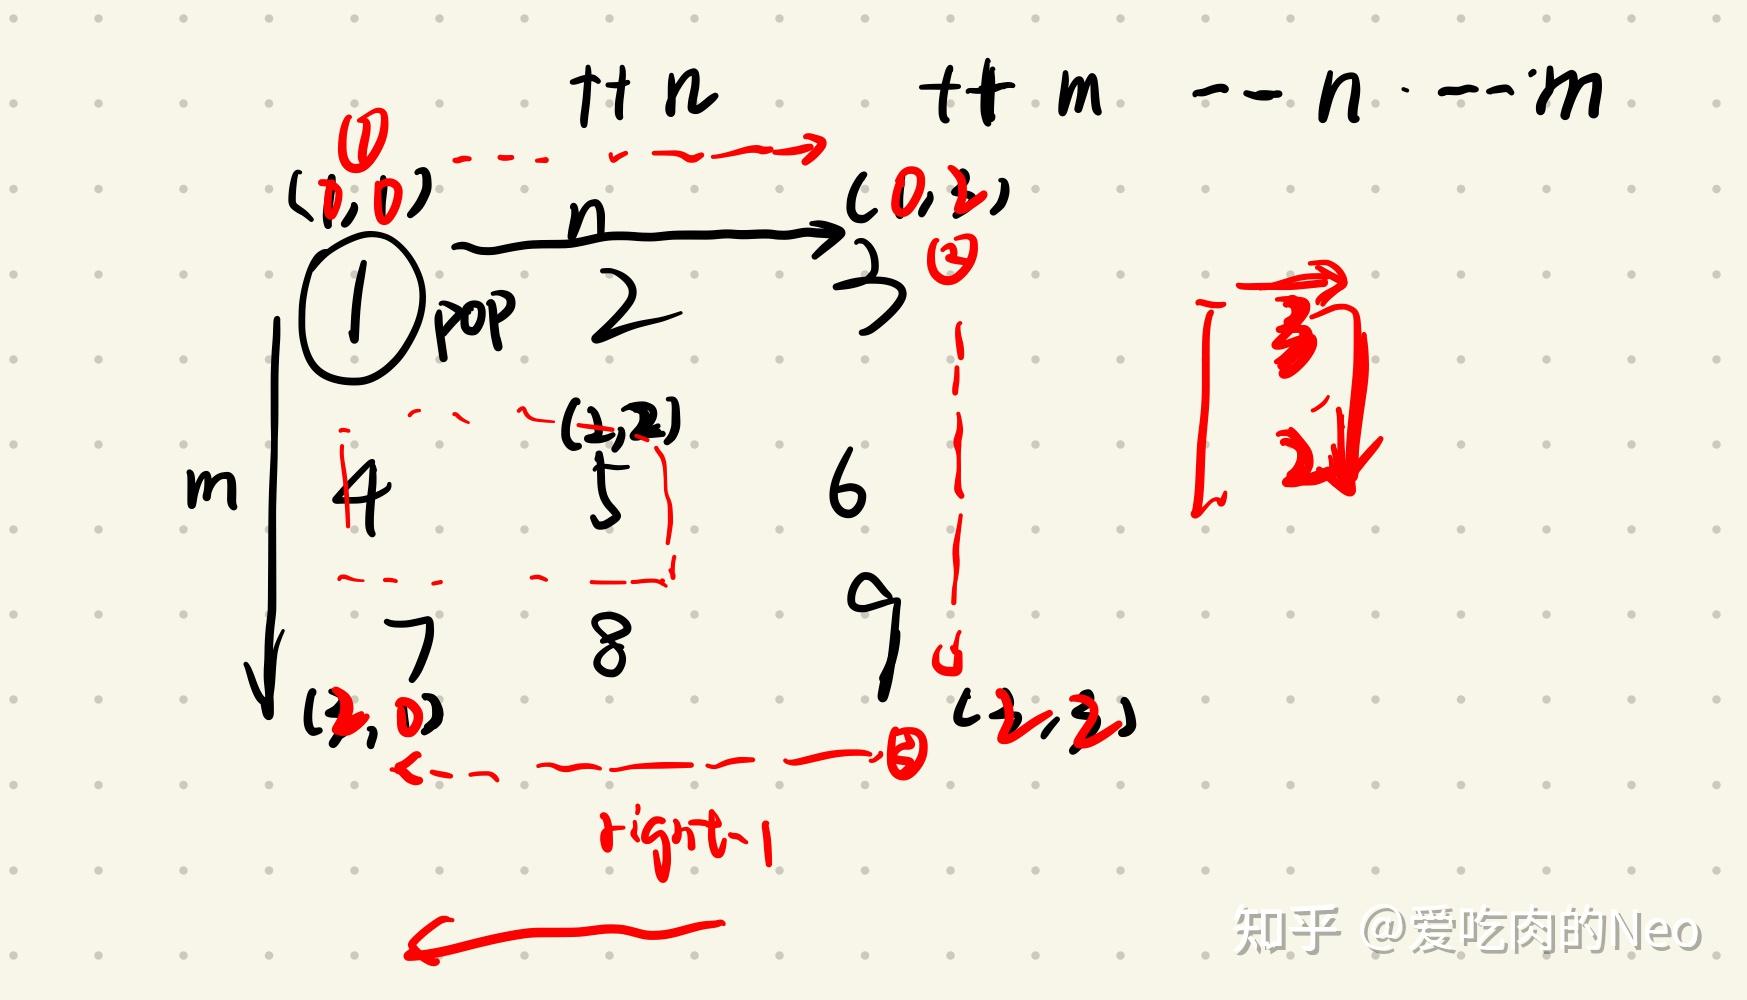 ++ n ++ m -- n -- m
①
(0,0) (0,2)
n
②
1 pop 2 3
3
(2,2)
2
m 4 5 6
7 8 9
(2,0) (2,2)
right-1
知乎 @爱吃肉的Neo